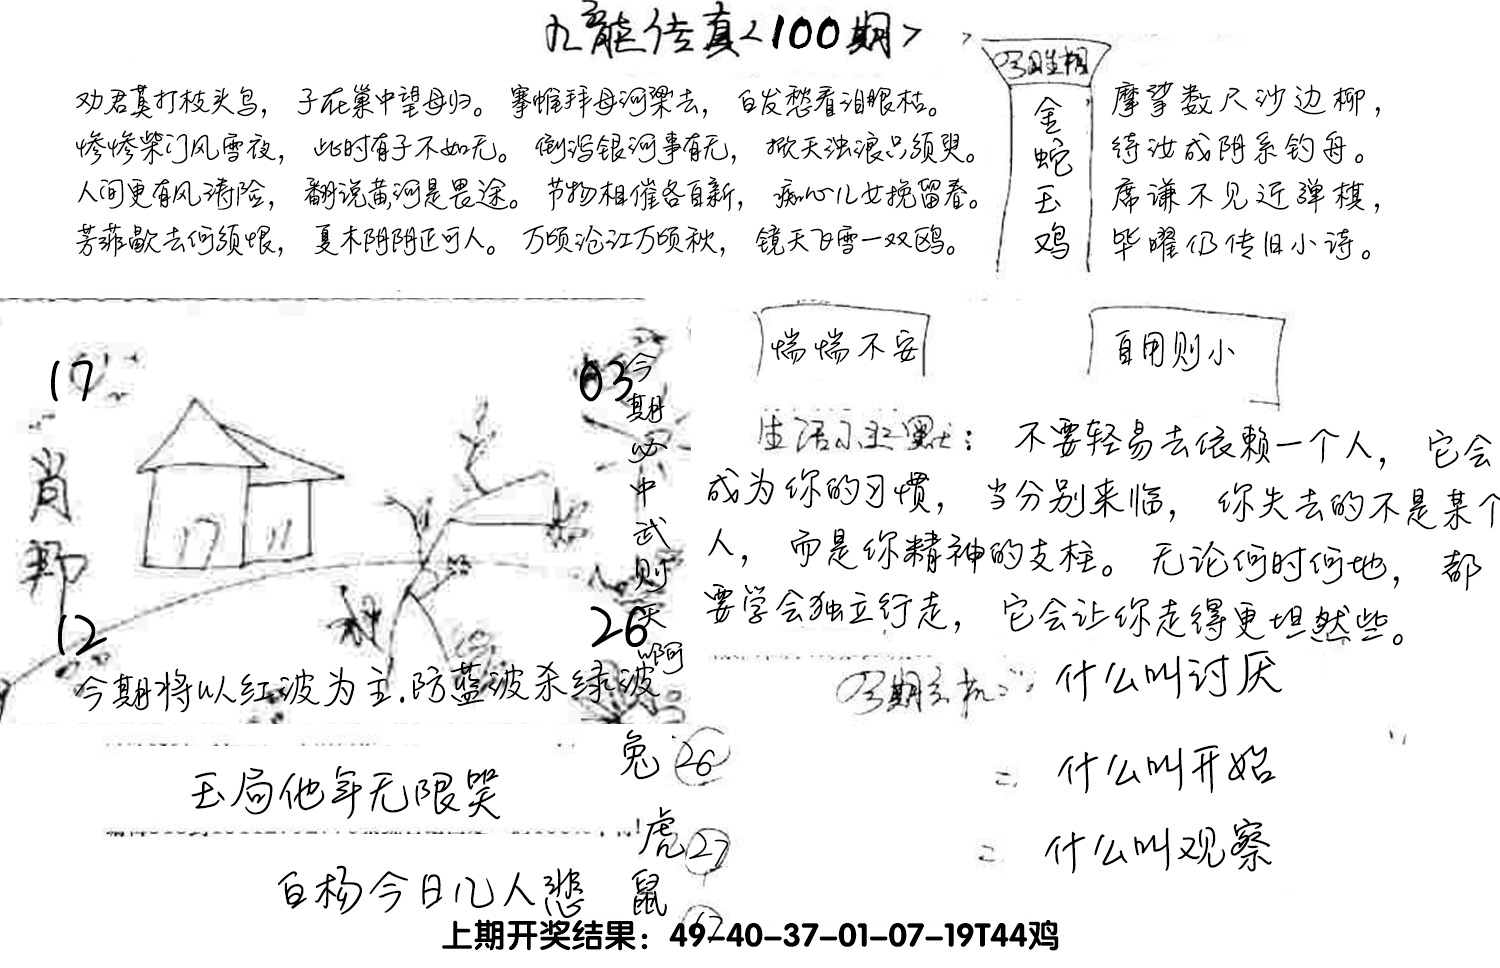 九龙传真<100期>
劝君莫打枝头鸟，子在巢中望母归。搴帷拜母河梁去，白发愁看泪眼枯。
惨惨柴门风雪夜，此时有子不如无。倒泻银河事有无，掀天浊浪只须臾。
人间更有风涛险，翻说黄河是畏途。节物相催各自新，痴心儿女挽留春。
芳菲歇去何须恨，夏木阴阴正可人。万顷沧江万顷秋，镜天飞雪一双鸥。
金蛇玉鸡
摩挲数尺沙边柳，
待汝成阴系钓舟。
席谦不见近弹棋，
毕曜仍传旧小诗。
17
03
肖
12
26
今期必中武则天啊
今期将以红波为主.防蓝波杀绿波
惴惴不安
自用则小
生活小幽默：不要轻易去依赖一个人，它会
成为你的习惯，当分别来临，你失去的不是某个
人，而是你精神的支柱。无论何时何地，都
要学会独立行走，它会让你走得更坦然些。
什么叫讨厌
二 什么叫开始
二 什么叫观察
玉局他年无限哭
白杨今日几人悲
兔 26
虎 27
鼠
上期开奖结果：49-40-37-01-07-19T44鸡